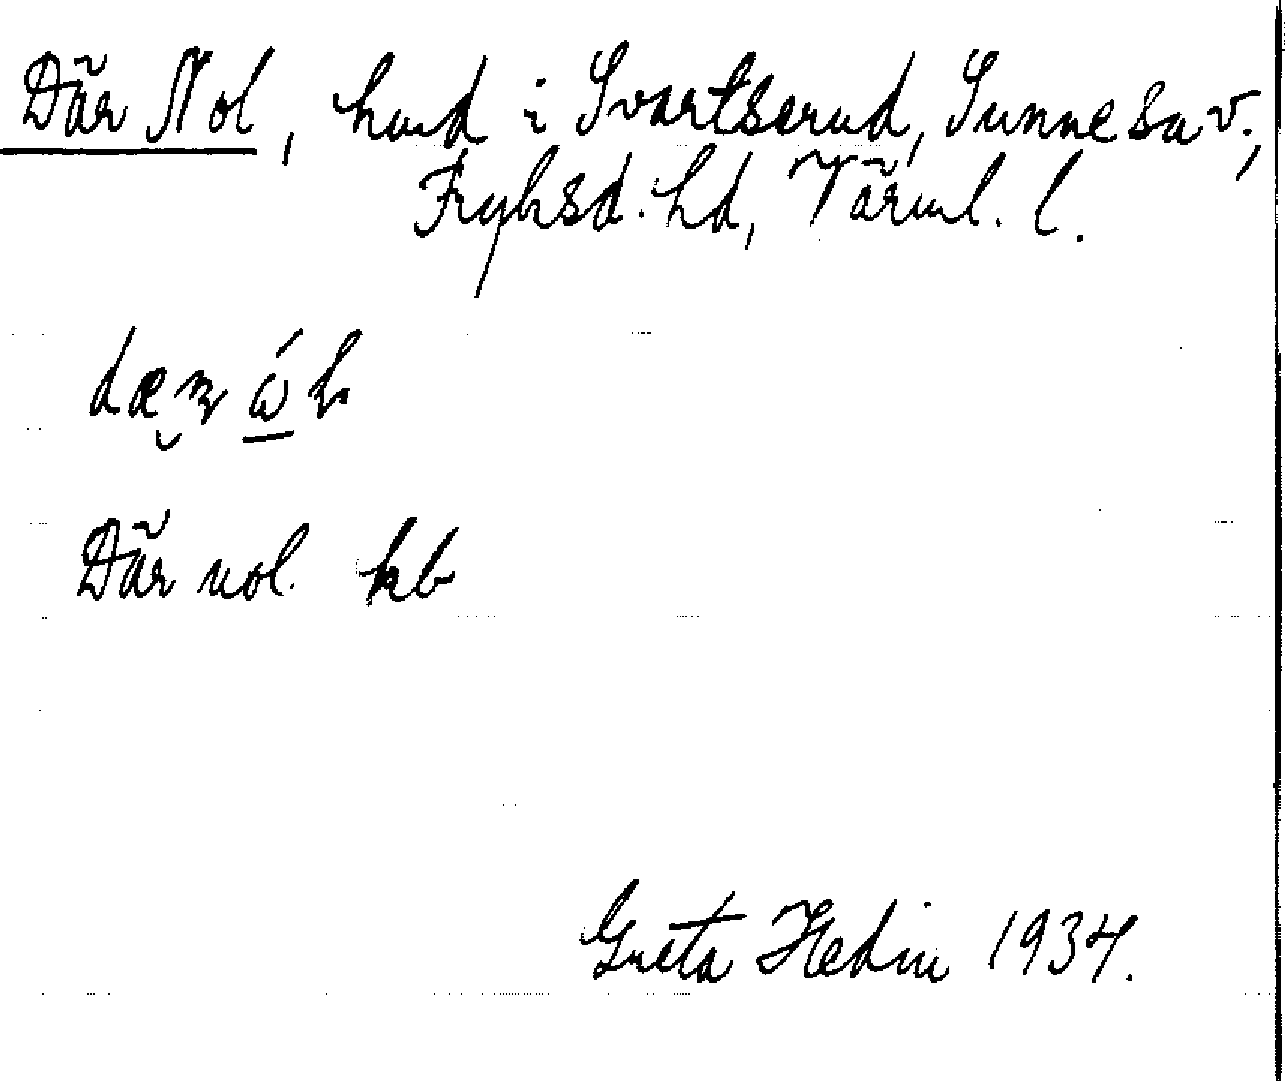 Där Nol, hmd i Svartserud, Sunne sn v.,
Fryksd. hd, Värml. l.
Där nol. kb
Greta Hedin 1934.